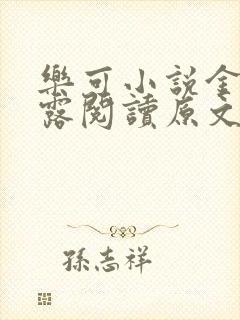 樂可小說金
露閱讀原文
孫志祥